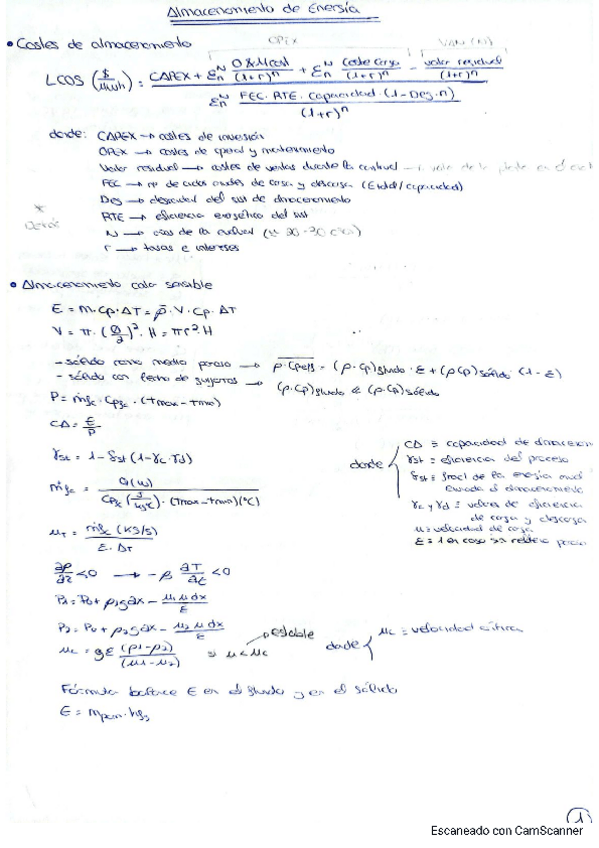 Almacenamiento de Energía
• Costes de almacenamiento
OPEX
VAN (N)
LCOS ($/MWh) = (CAPEX + Σn^N O&Mcost/(1+r)^n + Σn^N Coste carga/(1+r)^n - valor residual/(1+r)^n) / (Σn^N FEC. RTE. Capacidad. (1-Deg.n)/(1+r)^n)
donde: CAPEX → costes de inversión
OPEX → costes de operal y mantenimiento
Valor residual → costes de ventas durante la
FEC → nº de ciclos anuales de carga y descarga (Etotal/capacidad)
Deg → del sist de almacenamiento
RTE → eficiencia exergética del sist
N → años de la (20-30 años)
r → tasas e intereses
• Almacenamiento calor sensible
E = m·Cp·ΔT = ρ̄·V·Cp·ΔT
V = π·(Ø/2)²·H = πr²·H
- sólido como medio poroso →
- sólido con lecho de →
(ρ·Cp)fluido · ε + (ρCp)sólido · (1-ε)
(ρ·Cp)fluido (ρ·Cp)sólido
P = ṁfc·Cpfc·(Tmax-Tmin)
CA = E/P
γst = 1-δst(1-γc·γd)
ṁfc = Q(w) / (Cpfc(J/kgºC)·(Tmax-Tmin)(ºC))
donde
CA ≡ capacidad de almacen
γst ≡ eficiencia del proceso
δst ≡ fracc de la energía
enviada al almacenamiento
γc y γd ≡ valores de eficiencia
de carga y descarga
u ≡ velocidad de carga
ε ≡ 1 en caso sin relleno poroso
∂ρ/∂z <0 → -β ∂T/∂z <0
P1 = P0 + ρ1gΔx - μ1 u dx/ε
P2 = P0 + ρ2gΔx - μ2 u dx/ε
uc = gε (ρ1-ρ2)/(μ1-μ2) ⇒ u<uc
estable
donde { uc ≡ velocidad crítica
Fórmula balance E en el fluido y en el sólido
1
Escaneado con CamScanner